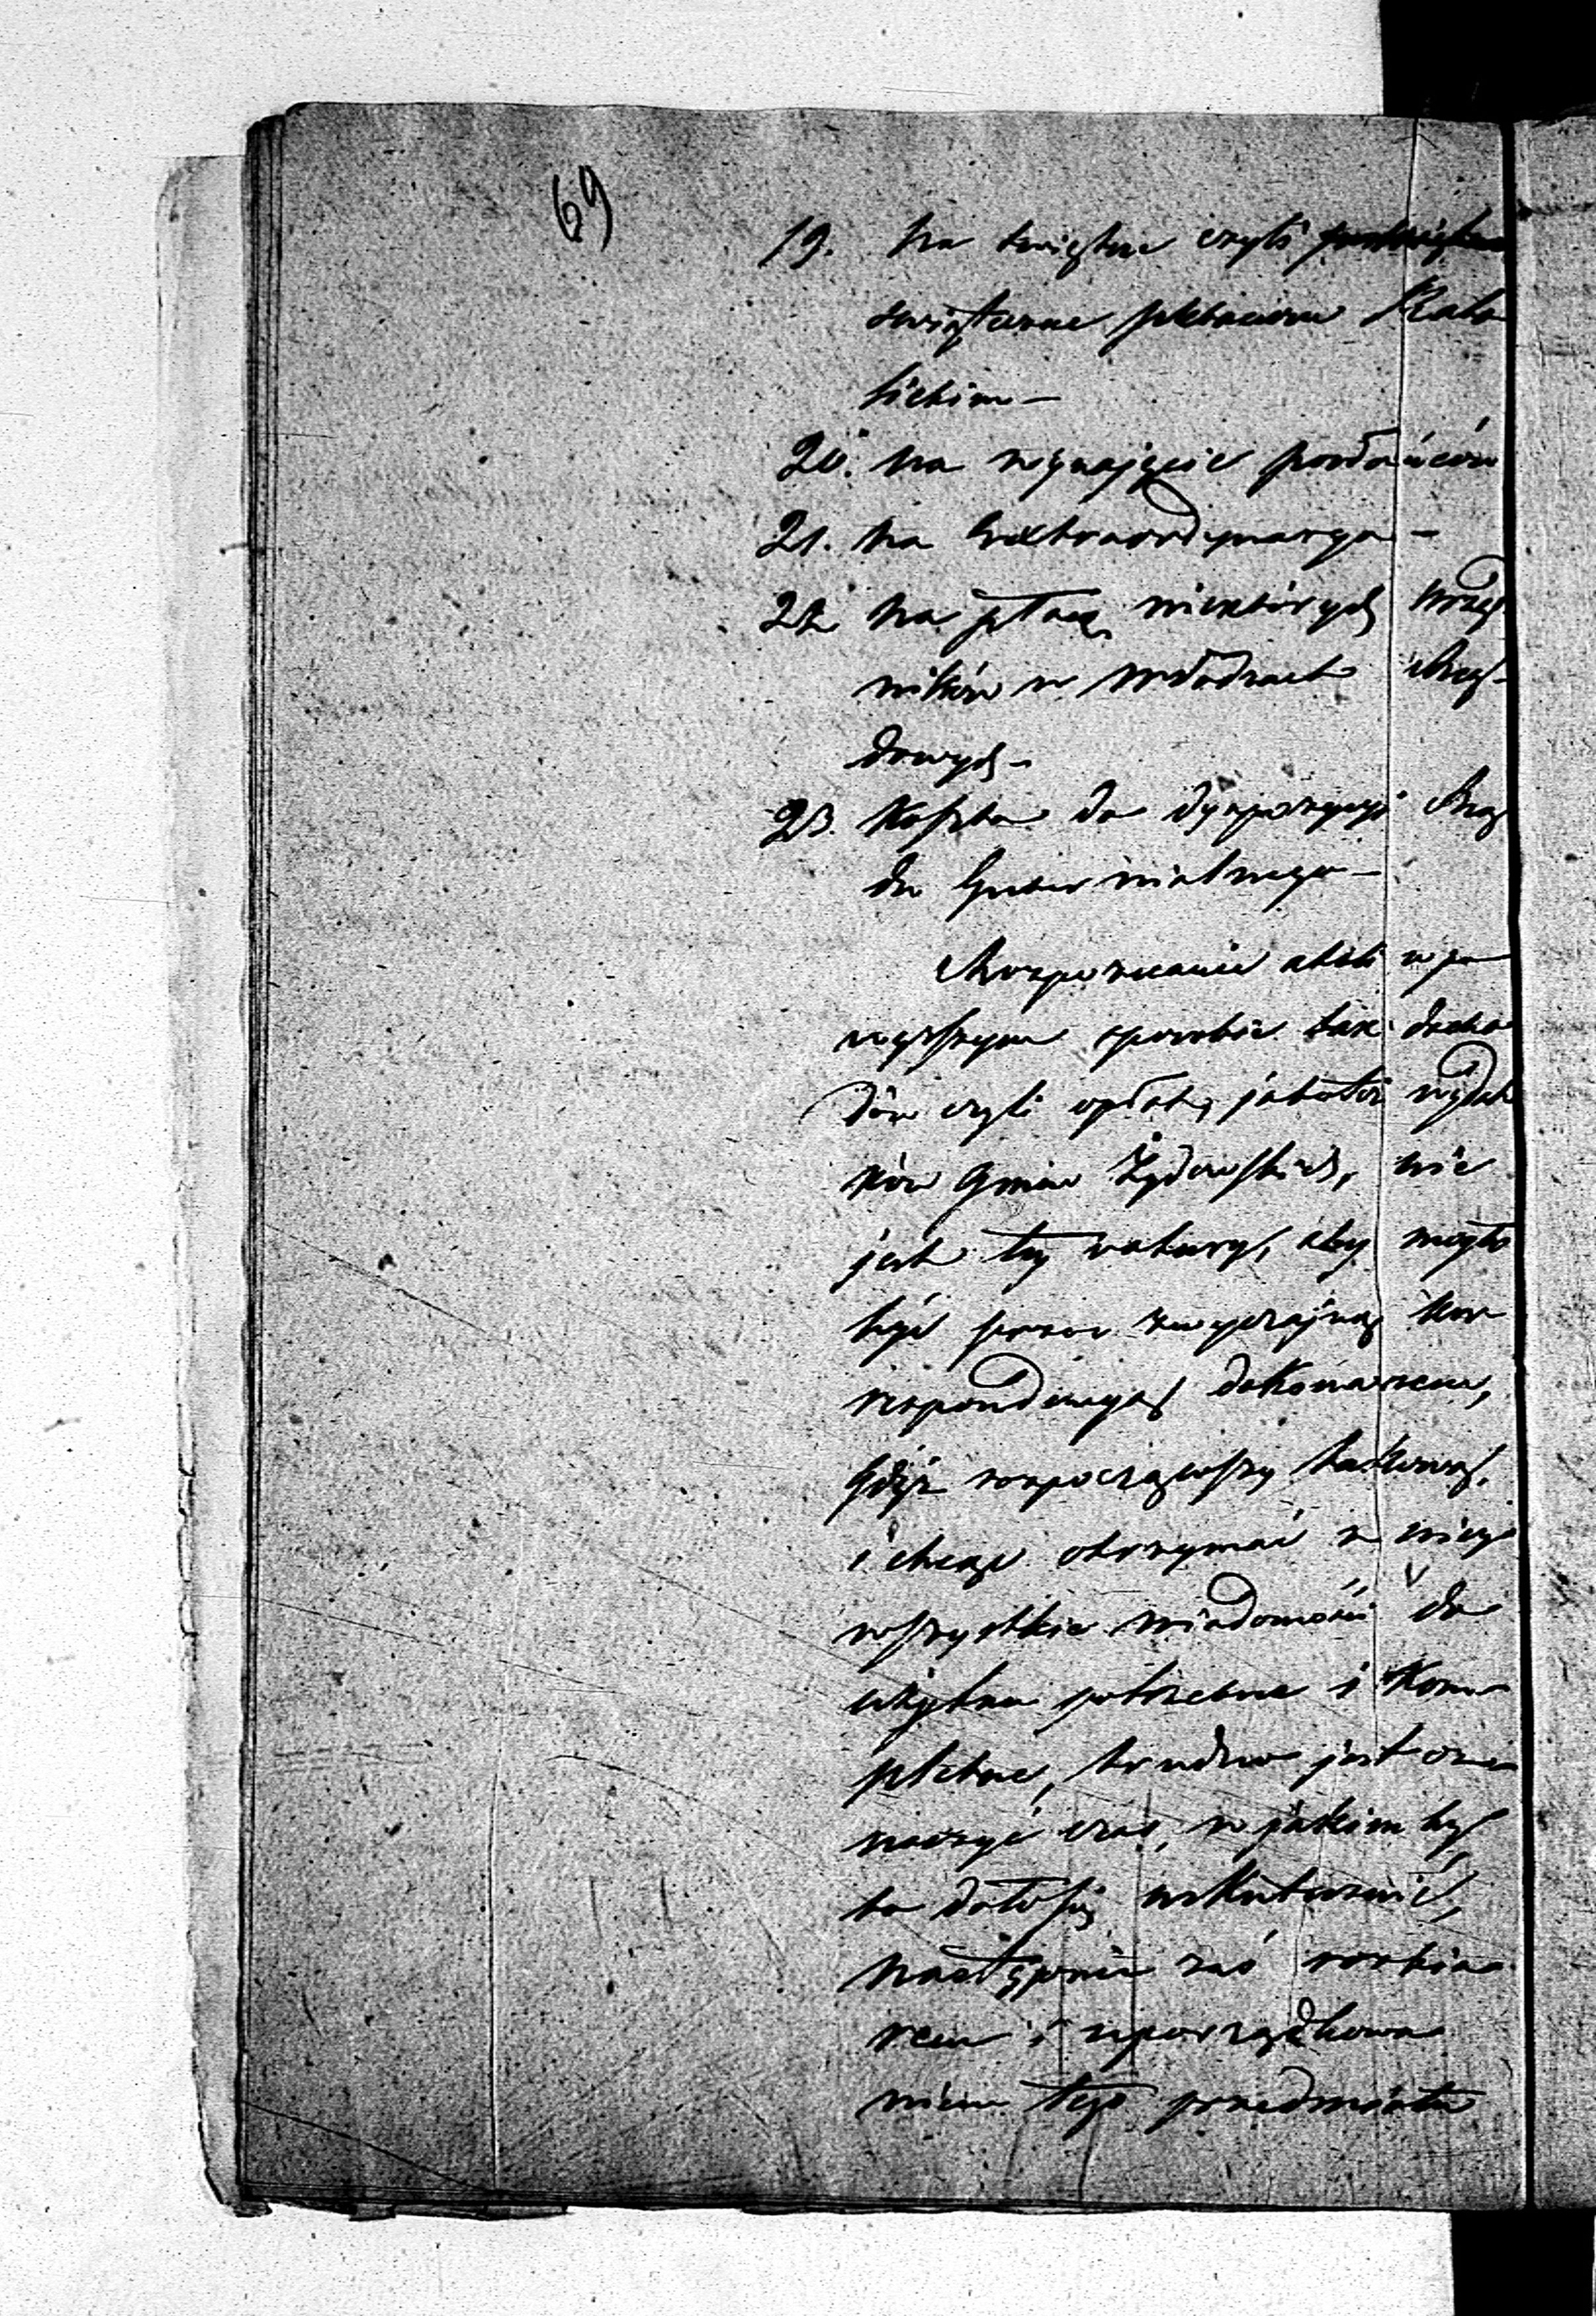 69
19. Na święcone czyli
świąteczne plebanom Kato
lickim —
20. Na wynajęcie posłańców
21. Na Extraordynarya —
22. Na płacę niektórych urzę
ników w władzach Rzą-
dowych —
23. Koszta do dyspozycyi Rzą
du Gubernialnego —
Rozpoznanie atoli w po
wyższym sposobie tak docho
dów czyli opłat, jakoteż wydat
ków Gmin Żydowskich, nie
jest tej natury, aby mogło
być przez zwyczajną kor
respondencyą dokonanem,
gdyż rozpocząwszy takową,
i chcąc otrzymać z niej
wszystkie wiadomości do
użytku potrzebne i kom-
pletne, trudno jest ozna
naczyć czas, w jakim by
to dało się uskutecznić,
następnie zaś rozbio
rem i uporządkowa
niem tego przedmiotu